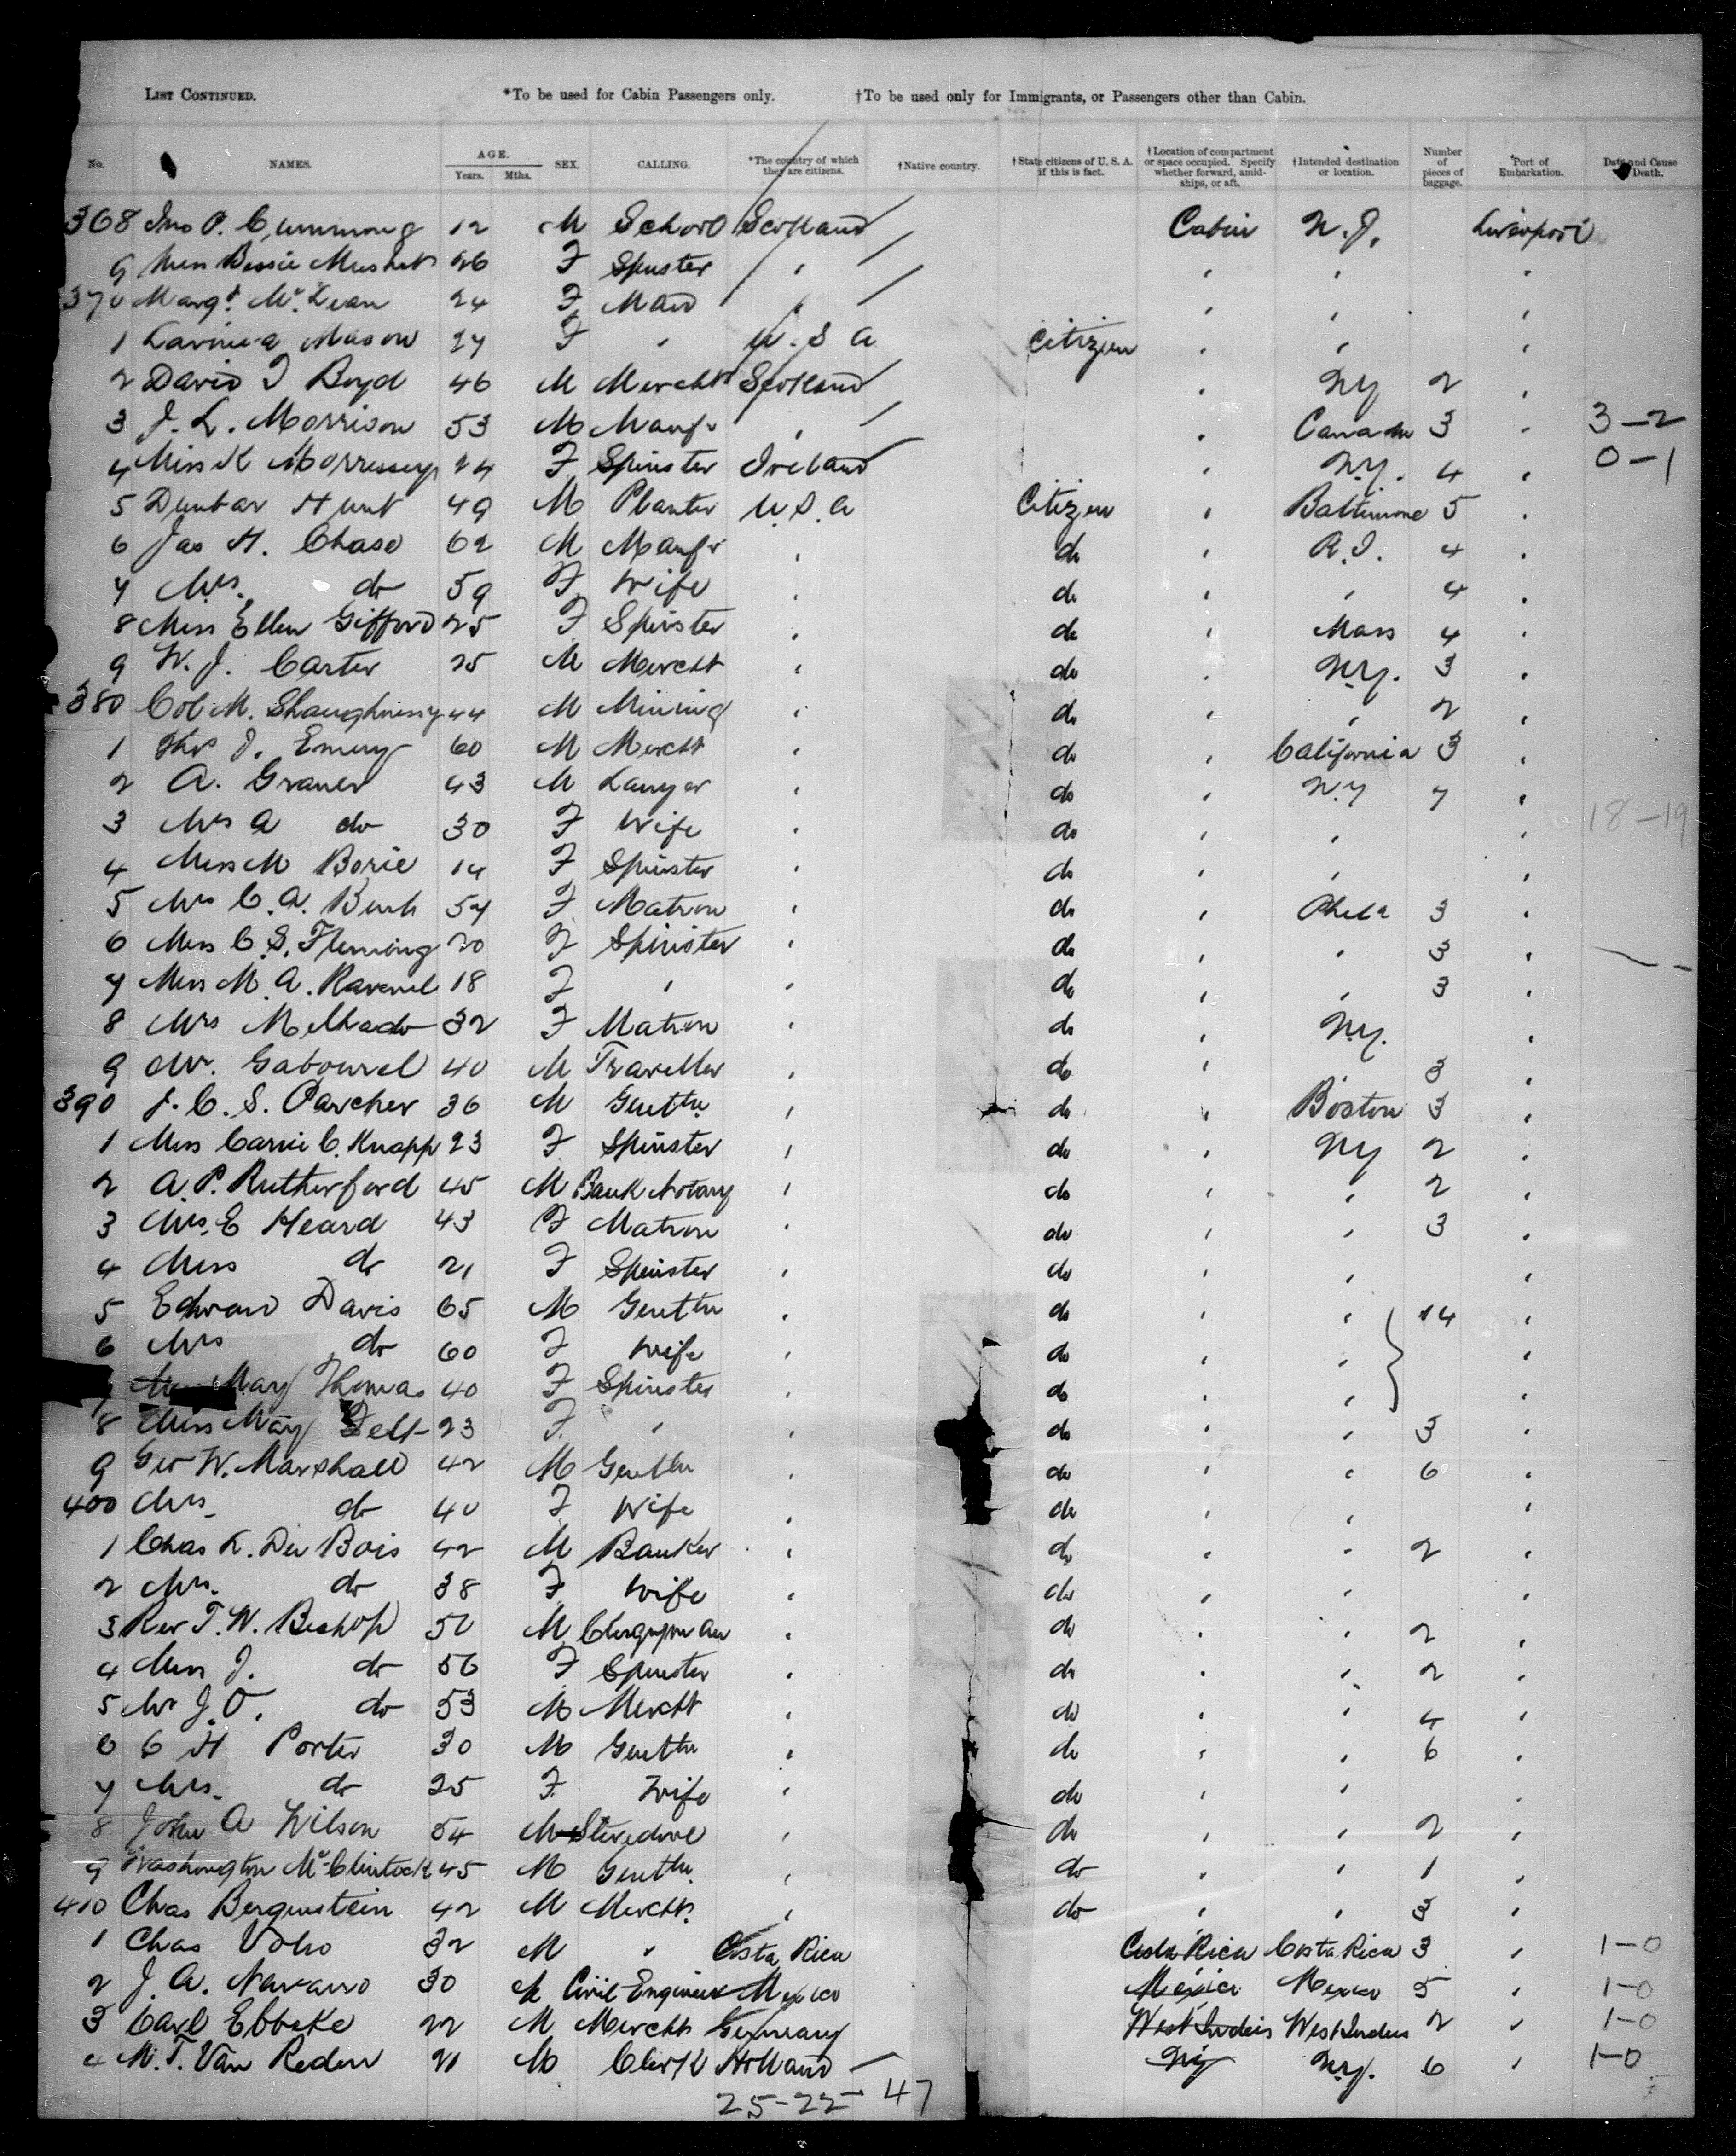 LIST CONTINUED. *To be used for Cabin Passengers only. †To be used only for Immigrants, or Passengers other than Cabin.
No. NAMES. AGE. Years. Mths. SEX. CALLING. *The country of which they are citizens. †Native country. †State citizens of U. S. A. if this is fact. †Location of compartment or space occupied. Specify whether forward, amidships, or aft. †Intended destination or location. Number of pieces of baggage. Port of Embarkation. Date and Cause Death.
368 Jno P. Cummong 12 M School Scotland Cabin N.J. Liverpool
9 Miss Bessie 26 F Spinster "
370 Margt. McLean 24 F Maid "
1 Lavinia Mason 27 F " U.S.A Citizen " " "
2 David T Boyd 46 M Mercht Scotland " NY 2 "
3 J. L. Morrison 53 M Manfr " " Canada 3 " 3-2
4 Miss K Morrissey 24 F Spinster Ireland " N.Y. 4 " 0-1
5 Dunbar Hunt 49 M Planter U.S.A Citizen " Baltimore 5 "
6 Jas H. Chase 62 M Manfr " do " R.I. 4 "
7 Mrs. do 59 F Wife " do " " 4 "
8 Miss Ellen Gifford 25 F Spinster " do " Mass 4 "
9 W. J. Carter 25 M Mercht " do " N.Y. 3 "
380 Col M. Shaughnessy 44 M Mining " do " " 2 "
1 Thos J. Emery 60 M Mercht " do " California 3 "
2 A. Graner 43 M Lawyer " do " N.Y 7 "
3 Mrs A do 30 F Wife " do " " " 18-19
4 Miss M Borie 14 F Spinster " do " " "
5 Mrs C. A. 54 F Matron " do " Phila 3 "
6 Miss C. S. Fleming 20 F Spinster " do " " 3 "
7 Miss M. A. Ravenel 18 F " " do " " 3 "
8 Mrs Melhado 32 F Matron " do " N.Y. "
9 Mr. Gabourel 40 M Traveller " do " 3 "
390 J. C. S. Parcher 36 M Gentln " do " Boston 3 "
1 Miss Carrie C. Knapp 23 F Spinster " do " NY 2 "
2 A. P. Rutherford 45 M Bank Notary " do " " 2 "
3 Mrs. E Heard 43 F Matron " do " " 3 "
4 Miss do 21 F Spinster " do " " "
5 Edward Davis 65 M Gentln " do " " 14 "
6 Mrs do 60 F Wife " do " " "
May Thomas 40 F Spinster " do " " "
8 Miss May 23 F " " do " 3 "
9 Geo W. Marshall 42 M Gentln " do " " 6 "
400 Mrs. do 40 F Wife " do " " "
1 Chas L. Du Bois 42 M Banker " do " " 2 "
2 Mrs. do 38 F Wife " do " " "
3 Rev T. W. Bishop 50 M Clergyman " do " " 2 "
4 Miss J. do 56 F Spinster " do " " 2 "
5 Mr J. O. do 53 M Mercht " do " " 4 "
6 C H Porter 30 M Gentln " do " " 6 "
7 Mrs. do 25 F Wife " do " " "
8 John A Wilson 54 M Stevedore " do " " 2 "
9 Washington McClintock 45 M Gentln. " do " " 1 "
410 Chas Bergenstein 42 M Mercht. " do " " 3 "
1 Chas Volio 32 M " Costa Rica Costa Rica Costa Rica 3 " 1-0
2 J. A. Navarro 30 M Civil Engineer Mexico Mexico Mexico 5 " 1-0
3 Carl Ebbeke 22 M Mercht Germany West Indies West Indies 2 " 1-0
4 M. T. Van Reden 21 M Clerk Holland NY N.Y. 6 " 1-0
25-22 47